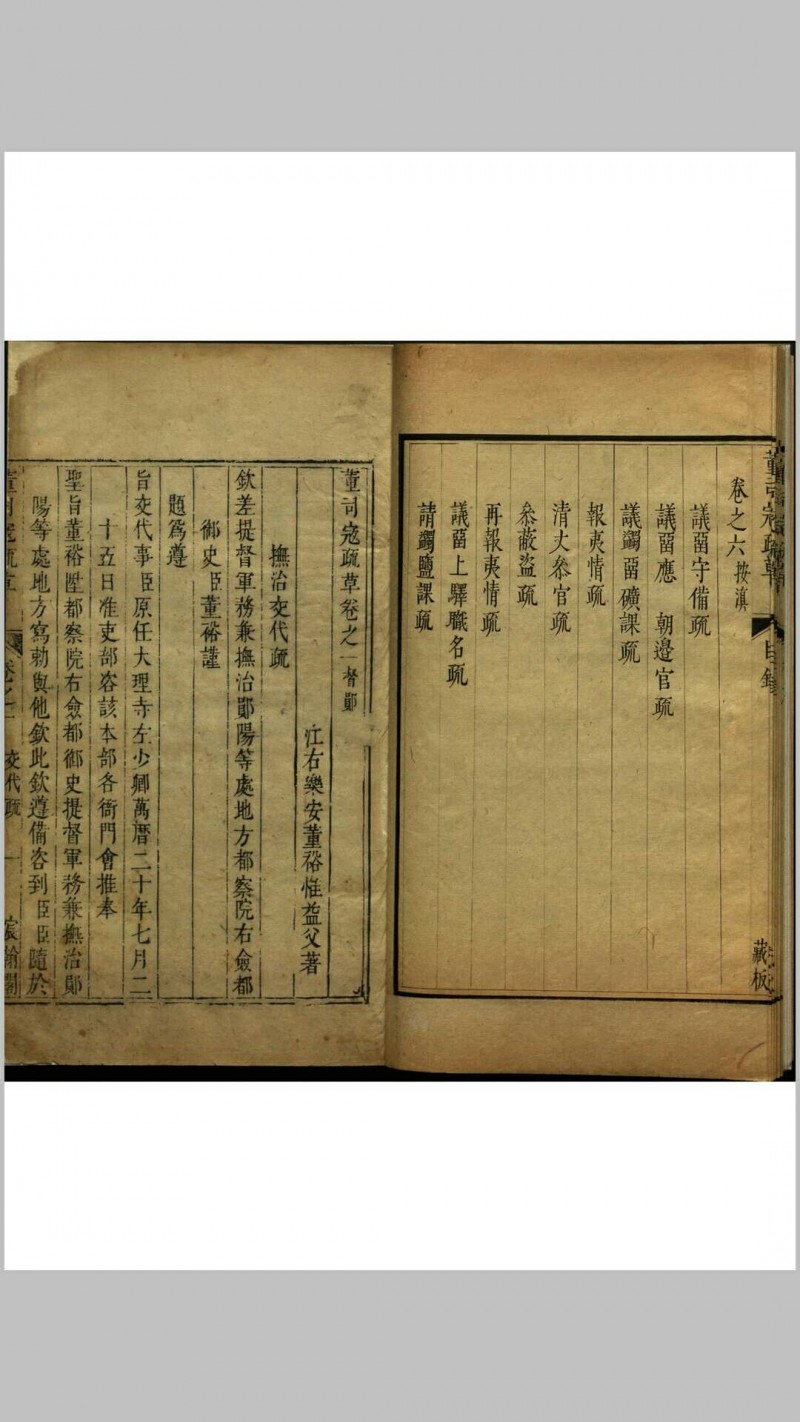 董司寇疏草
目錄
藏板
卷之六按滇
議畱守備疏
議畱應　朝邊官疏
議蠲畱礦課疏
報夷情疏
清丈叅官疏
叅蔽盜疏
再報夷情疏
議畱上驛職名疏
請蠲鹽課疏
董司寇疏草卷之一督鄖
江右樂安董裕惟益父著
撫治交代疏
欽差提督軍務兼撫治鄖陽等處地方都察院右僉都
御史臣董裕謹
題爲遵
旨交代事臣原任大理寺左少卿萬曆二十年七月二
十五日准吏部咨該本部各衙門會推奉
聖旨董裕陞都察院右僉都御史提督軍務兼撫治鄖
陽等處地方寫勅與他欽此欽遵備咨到臣臣隨於
董司寇疏草
卷之一
交代疏
一